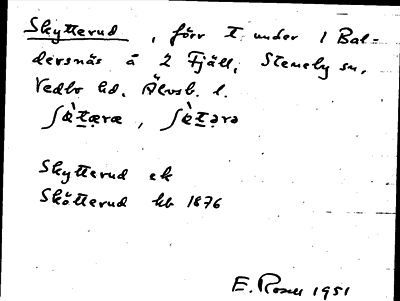 Skytterud, förr t. under 1 Bal-
dersnäs å 2 Fjäll, Steneby sn,
Vedbo hd. Älvsb. l.
Skytterud ek
Skötterud kb 1876
E. Rosell 1951